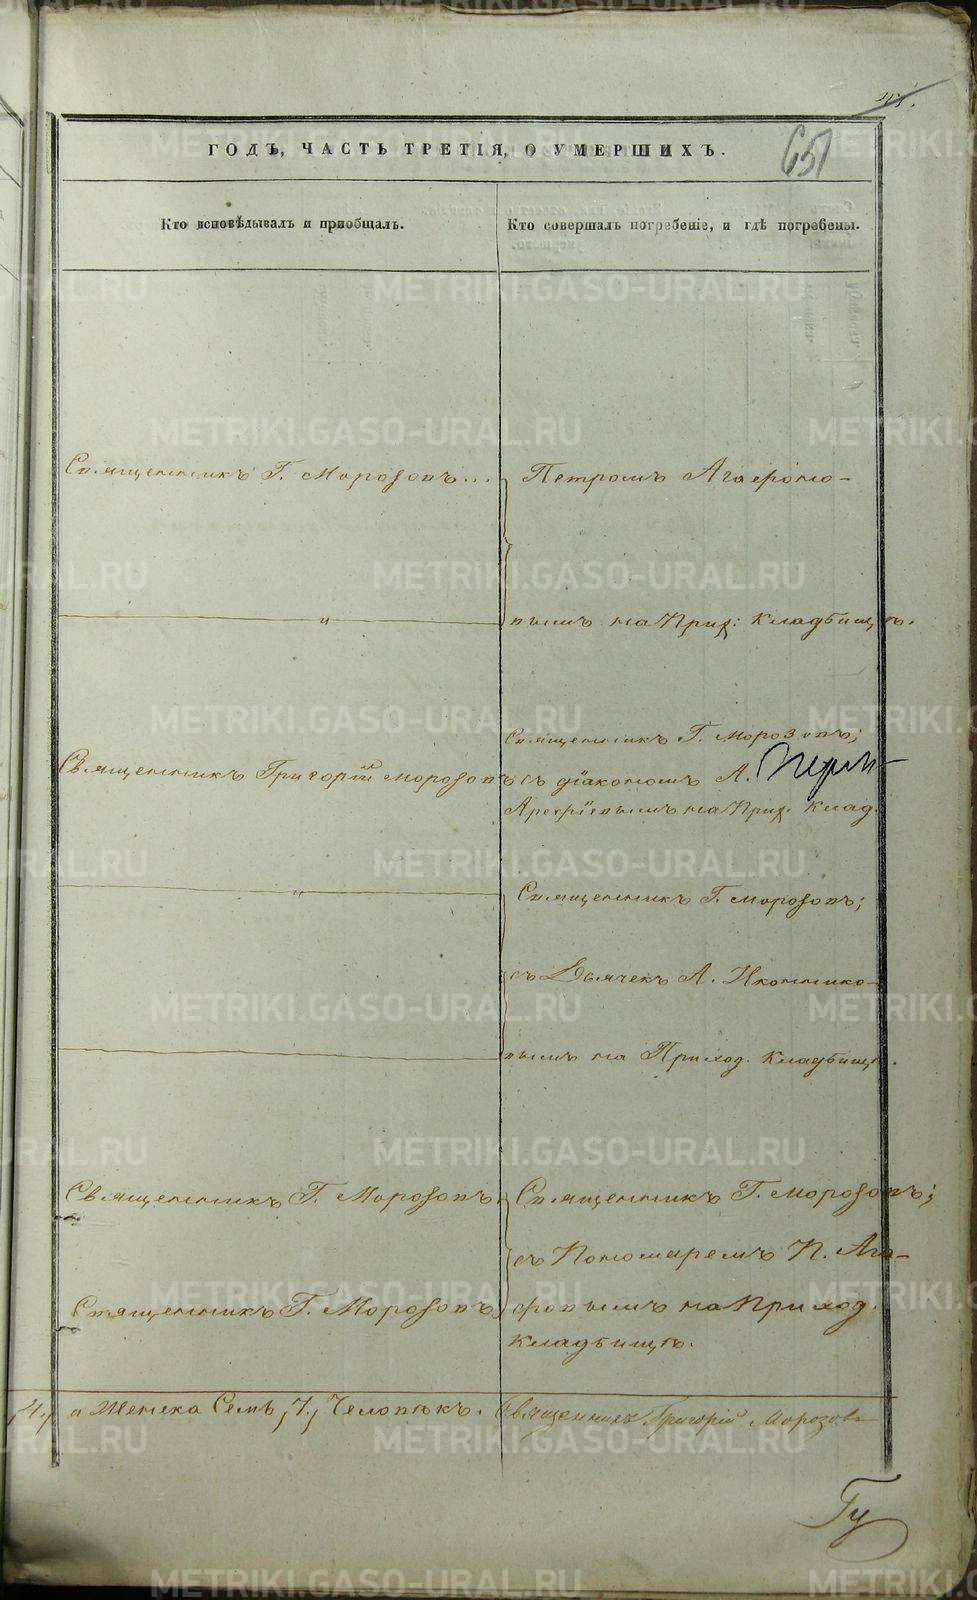 651
ГОДЪ, ЧАСТЬ ТРЕТІЯ, О УМЕРШИХЪ.
Кто исповѣдывалъ и пріобщалъ.
Кто совершалъ погребеніе, и гдѣ погребены.
Священникъ Г. Морозовъ...
Петромъ Агафоно-
"
вымъ на Прих: Кладбищѣ.
Священникъ Г. Морозовъ;
Священникъ Григорій Морозовъ
съ діакономъ А.
Арефіевымъ на Прих. Клад.
"
Священникъ Г. Морозовъ;
съ Дьячекъ А. Иконнико-
вымъ на Приход. Кладбищѣ.
Священникъ Г. Морозовъ
Священникъ Г. Морозовъ;
съ Пономаремъ П. Ага-
Священникъ Г. Морозовъ
фовымъ на Приход.
Кладбищѣ.
4, и женска Семь, 7, Человѣкъ.
Священникъ Григорій Морозовъ
METRIKI.GASO-URAL.RU